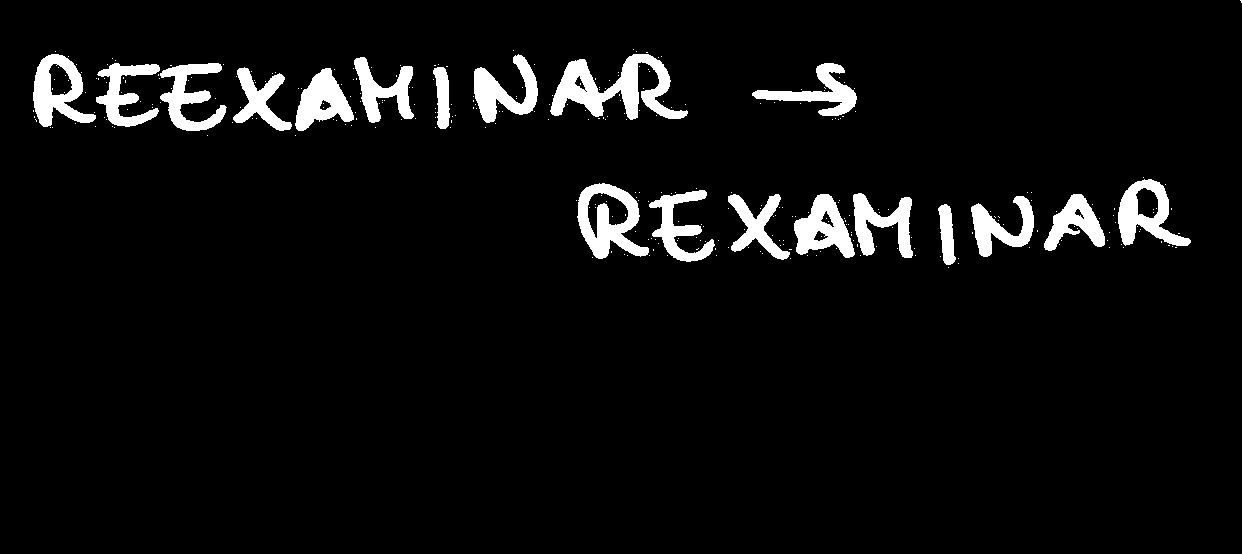 REEXAMINAR →
REXAMINAR